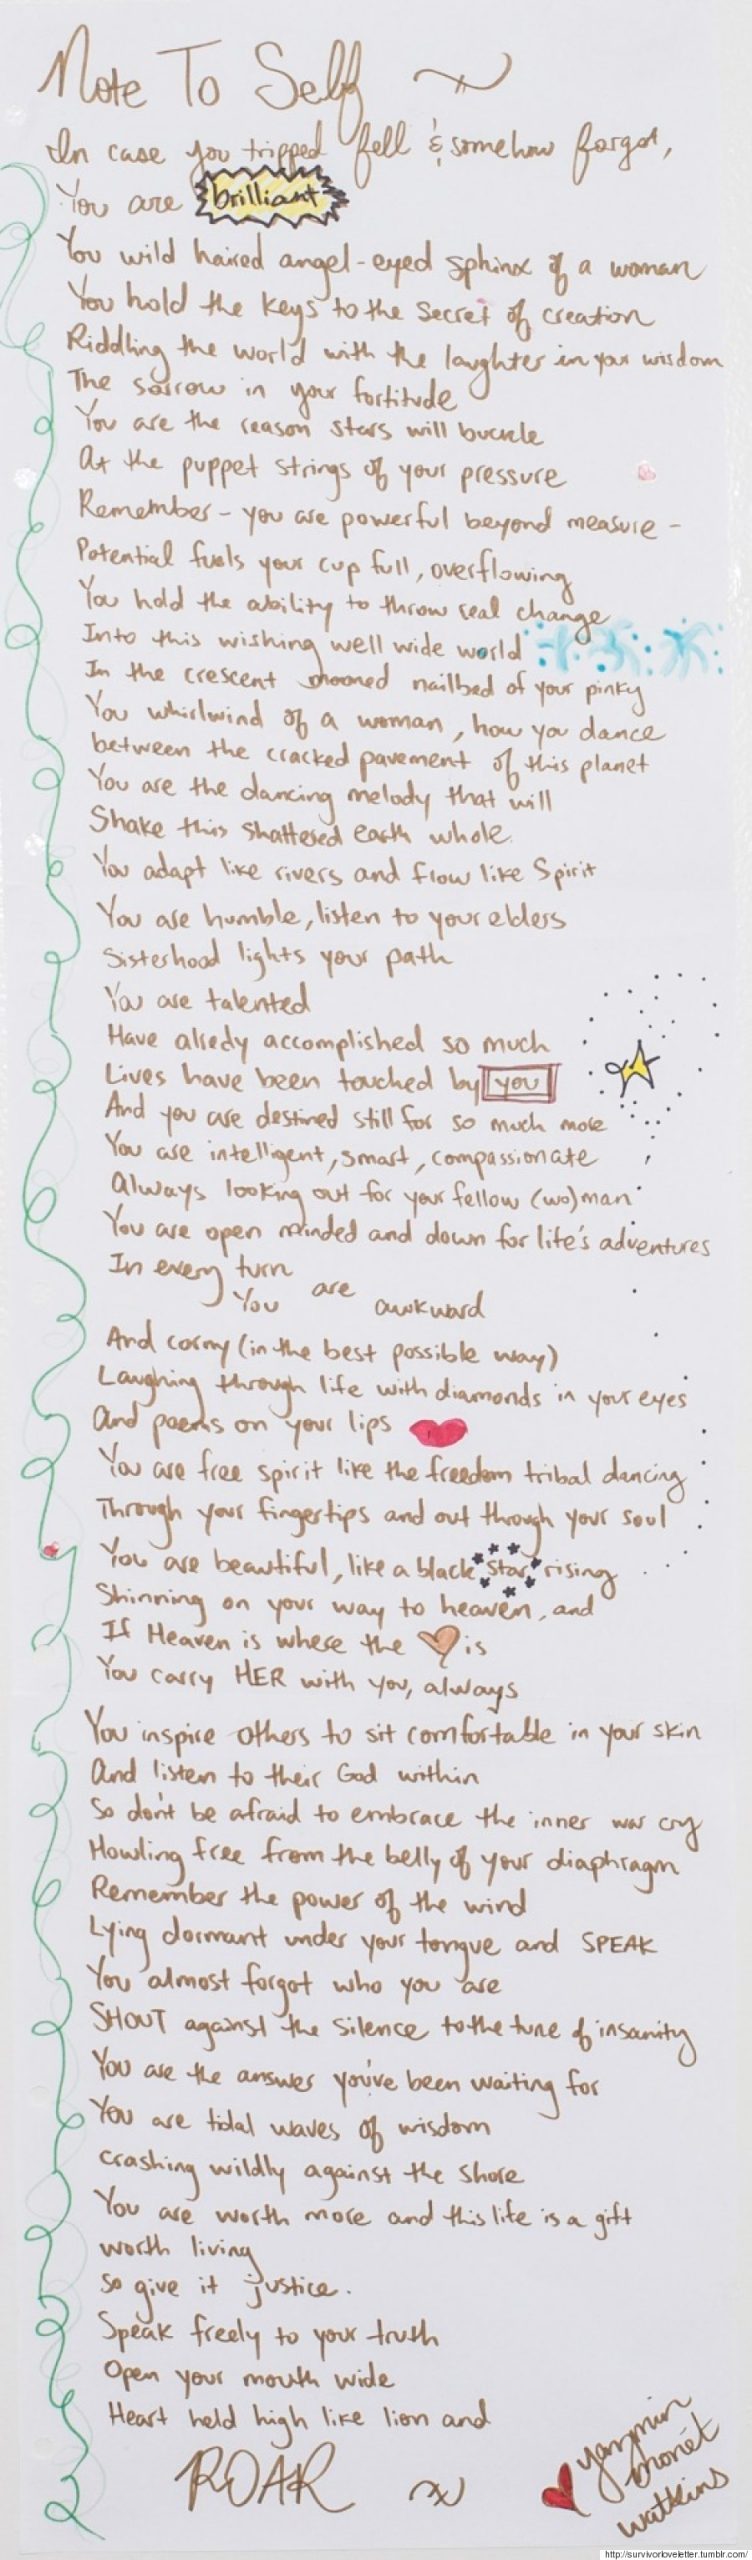 Note To Self
In case you tripped fell & somehow forgot,
You are brilliant
You wild haired angel-eyed sphinx of a woman
You hold the keys to the secret of creation
Riddling the world with the laughter in your wisdom
The sorrow in your fortitude
You are the reason stars will buckle
At the puppet strings of your pressure
Remember - you are powerful beyond measure -
Potential fuels your cup full, overflowing
You hold the ability to throw real change
Into this wishing well wide world
In the crescent mooned nailbed of your pinky
You whirlwind of a woman, how you dance
between the cracked pavement of this planet
You are the dancing melody that will
Shake this shattered earth whole.
You adapt like rivers and flow like Spirit
You are humble, listen to your elders
Sisterhood lights your path
You are talented
Have alredy accomplished so much
Lives have been touched by you
And you are destined still for so much more
You are intelligent, smart, compassionate
Always looking out for your fellow (wo)man
You are open minded and down for life's adventures
In every turn
You are awkward
And corny (in the best possible way)
Laughing through life with diamonds in your eyes
And poems on your lips
You are free spirit like the freedom tribal dancing
Through your fingertips and out through your soul
You are beautiful, like a black star rising
Shinning on your way to heaven, and
If Heaven is where the is
You carry HER with you, always
You inspire others to sit comfortable in your skin
And listen to their God within
So don't be afraid to embrace the inner war cry
Howling free from the belly of your diaphragm
Remember the power of the wind
Lying dormant under your tongue and SPEAK
You almost forgot who you are
SHOUT against the silence to the tune of insanity
You are the answer you've been waiting for
You are tidal waves of wisdom
crashing wildly against the shore
You are worth more and this life is a gift
worth living
So give it justice.
Speak freely to your truth
Open your mouth wide
Heart held high like lion and
ROAR
Yazmin
Monét
Watkins
http://survivorloveletter.tumblr.com/